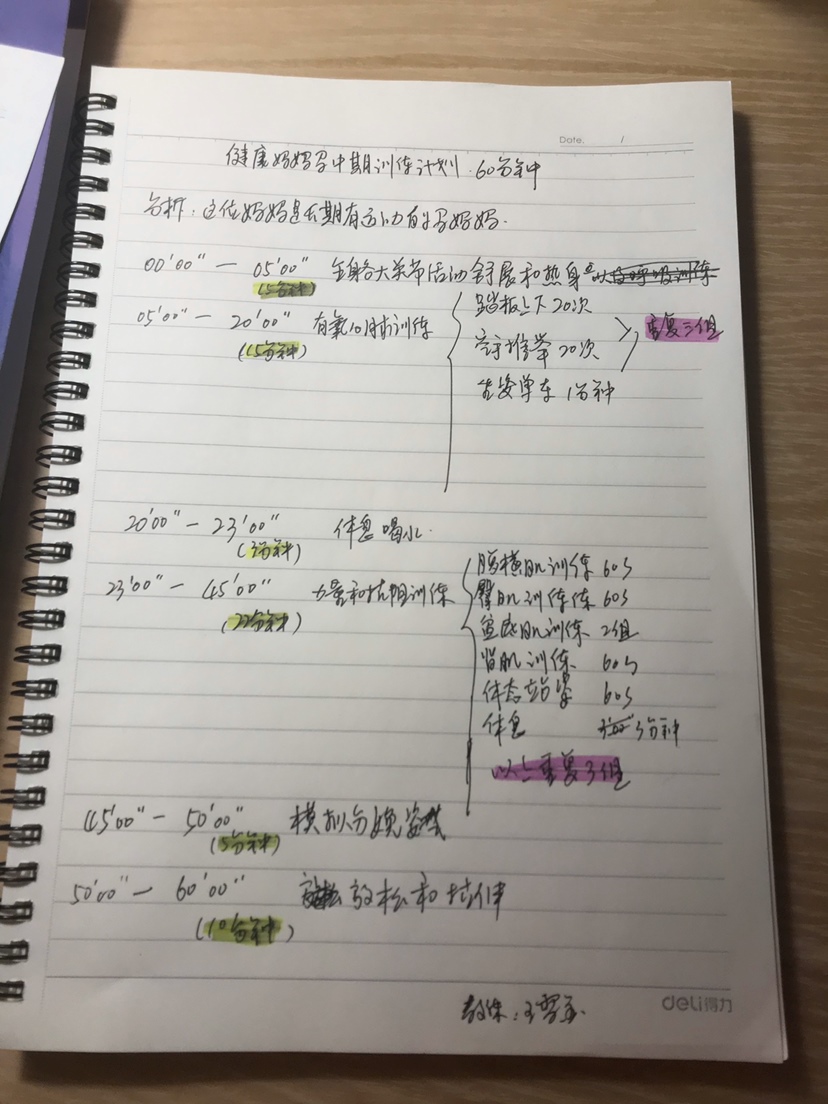 Date. /
健康妈妈孕中期训练计划. 60分钟
分析：这位妈妈是长期有运动的孕妈妈.
00'00" — 05'00" 全身各大关节活动舒展和热身
(5分钟)
05'00" — 20'00" 有氧心肺训练
(15分钟)
踏板上下 20次
推举 20次
重复三组
坐姿单车 1分钟
20'00" — 23'00" 休息喝水.
(3分钟)
23'00" — 45'00" 力量和抗阻训练
(22分钟)
腹横肌训练 60s
臀肌训练 60s
盆底肌训练 2组
背肌训练 60s
体态 60s
休息 3分钟
以上重复3组
45'00" — 50'00" 模拟分娩
(5分钟)
50'00" — 60'00" 放松和拉伸
(10分钟)
教练：王
deli得力